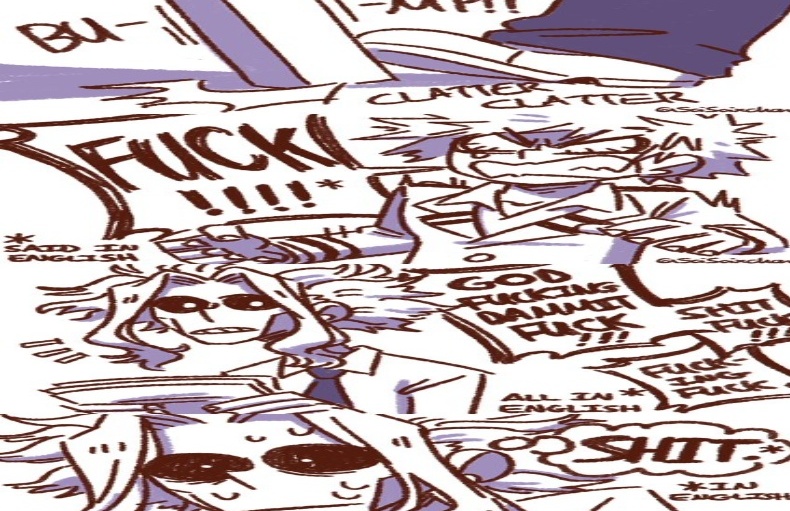 BU-
-MP!!
CLATTER
CLATTER
FUCK!
!!!!*
*
SAID IN
ENGLISH
GOD
FUCKING
DAMMIT
FUCK
!!!
SHIT
FUCK
!!!
FUCK-
ING
FUCK
ALL IN *
ENGLISH
SHIT.*
*IN
ENGLISH